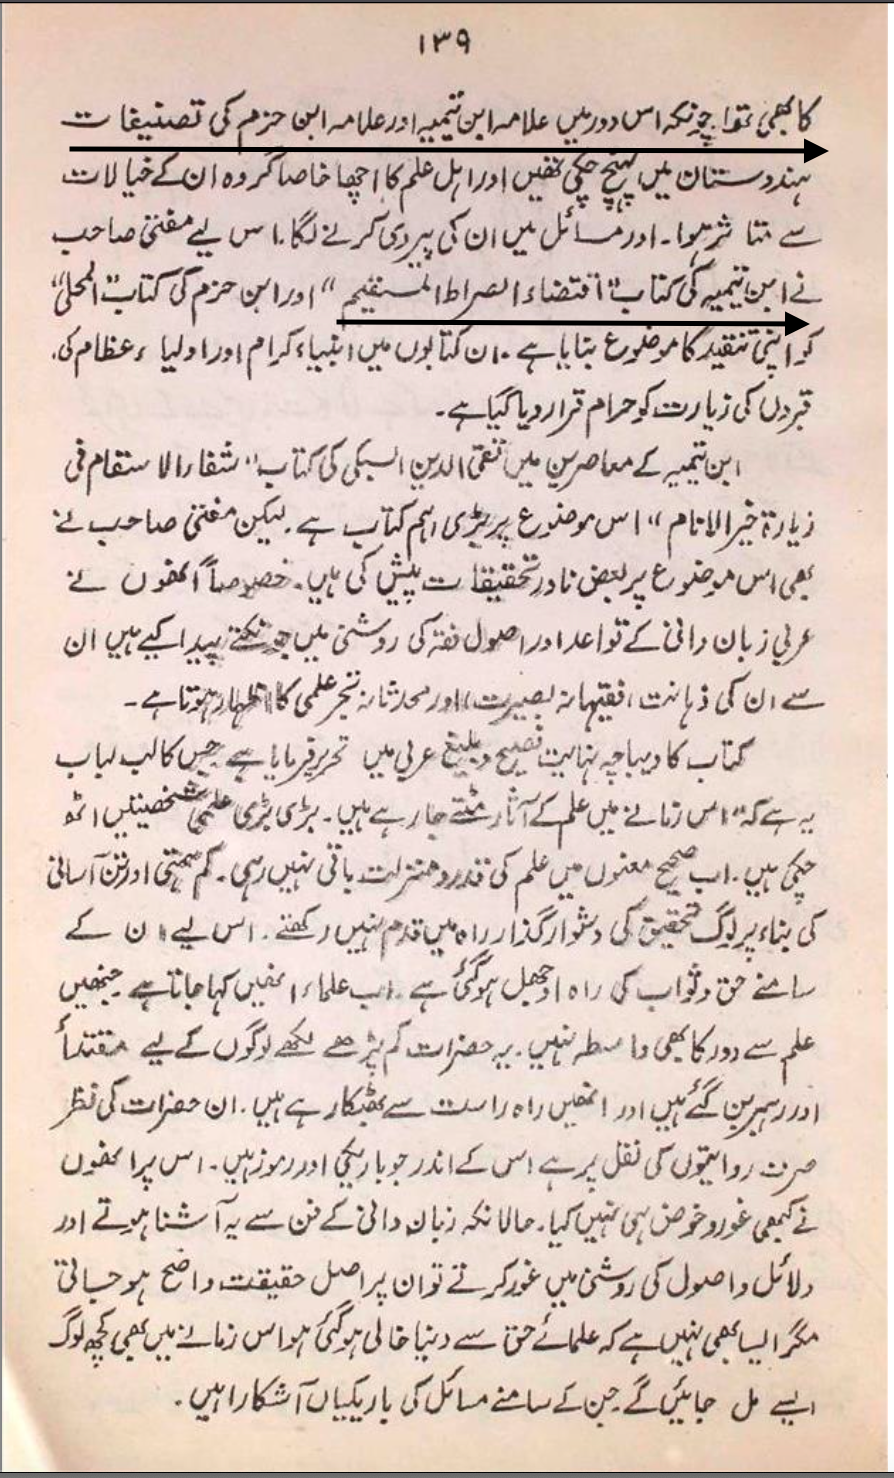 ۱۳۹
کا بھی تھا۔ چونکہ اس دور میں علامہ ابن تیمیہ اور علامہ ابن حزم کی تصنیفات
ہندوستان میں پہنچ چکی تھیں اور اہل علم کا اچھا خاصا گروہ ان کے خیالات
سے متاثر ہوا۔ اور مسائل میں ان کی پیروی کرنے لگا۔ اس لیے مفتی صاحب
نے ابن تیمیہ کی کتاب "اقتضاء الصراط المستقیم" اور ابن حزم کی کتاب "المحلی"
کو اپنی تنقید کا موضوع بنایا ہے۔ ان کتابوں میں انبیاء کرام اور اولیاء عظام کی
قبروں کی زیارت کو حرام قرار دیا گیا ہے۔
ابن تیمیہ کے معاصرین میں تقی الدین السبکی کی کتاب "شفاء الاسقام فی
زیارۃ خیر الانام" اس موضوع پر بڑی اہم کتاب ہے۔ لیکن مفتی صاحب نے
بھی اس موضوع پر بعض نادر تحقیقات پیش کی ہیں۔ خصوصاً انھوں نے
عربی زبان دانی کے قواعد اور اصول فقہ کی روشنی میں جو نکتے پیدا کیے ہیں ان
سے ان کی ذہانت، فقیہانہ بصیرت، اور محدثانہ تبحر علمی کا اظہار ہوتا ہے۔
کتاب کا دیباچہ نہایت فصیح و بلیغ عربی میں تحریر فرمایا ہے جس کا لب لباب
یہ ہے کہ "اس زمانے میں علم کے آثار مٹتے جا رہے ہیں۔ بڑی بڑی علمی شخصیتیں اٹھ
چکی ہیں۔ اب صحیح معنوں میں علم کی قدر و منزلت باقی نہیں رہی۔ کم ہمتی اور تن آسانی
کی بناء پر لوگ تحقیق کی دشوار گذار راہ میں قدم نہیں رکھتے۔ اس لیے ان کے
سامنے حق و ثواب کی راہ اوجھل ہو گئی ہے۔ اب علماء انھیں کہا جاتا ہے جنھیں
علم سے دور کا بھی واسطہ نہیں۔ یہ حضرات کم پڑھے لکھے لوگوں کے لیے مقتدأ
اور رہبر بن گئے ہیں اور انھیں راہ راست سے بھٹکا رہے ہیں۔ ان حضرات کی نظر
صرف روایتوں کی نقل پر ہے اس کے اندر جو باریکی اور رموز ہیں۔ اس پر انھوں
نے کبھی غور و خوض ہی نہیں کیا۔ حالانکہ زبان دانی کے فن سے یہ آشنا ہوتے اور
دلائل و اصول کی روشنی میں غور کرتے تو ان پر اصل حقیقت واضح ہو جاتی
مگر ایسا بھی نہیں ہے کہ علمائے حق سے دنیا خالی ہو گئی ہو اس زمانے میں بھی کچھ لوگ
ایسے مل جائیں گے جن کے سامنے مسائل کی باریکیاں آشکارا ہیں۔